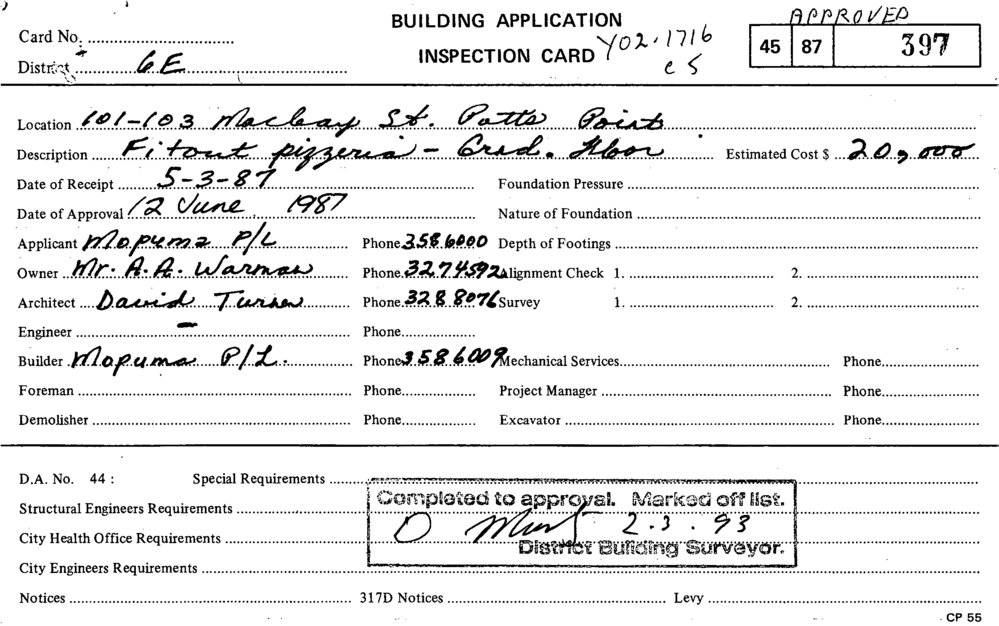 APPROVED
BUILDING APPLICATION
Card No.
Y02-1716
45 87 397
INSPECTION CARD
c 5
District 6E
Location 101-103 Macleay St. Potts Point
Description Fitout pizzeria - Grnd. Floor Estimated Cost $ 20,000
Date of Receipt 5-3-87 Foundation Pressure
Date of Approval 12 June 1987 Nature of Foundation
Applicant Mopuma P/L Phone 358 6000 Depth of Footings
Owner Mr. A.A. Warman Phone 3274592 Alignment Check 1. 2.
Architect David Turner Phone 328 8076 Survey 1. 2.
Engineer - Phone
Builder Mopuma P/L. Phone 358 6009 Mechanical Services Phone
Foreman Phone Project Manager Phone
Demolisher Phone Excavator Phone
D.A. No. 44 : Special Requirements
Completed to approval. Marked off list.
Structural Engineers Requirements
2.3.93
City Health Office Requirements
District Building Surveyor.
City Engineers Requirements
Notices 317D Notices Levy
CP 55